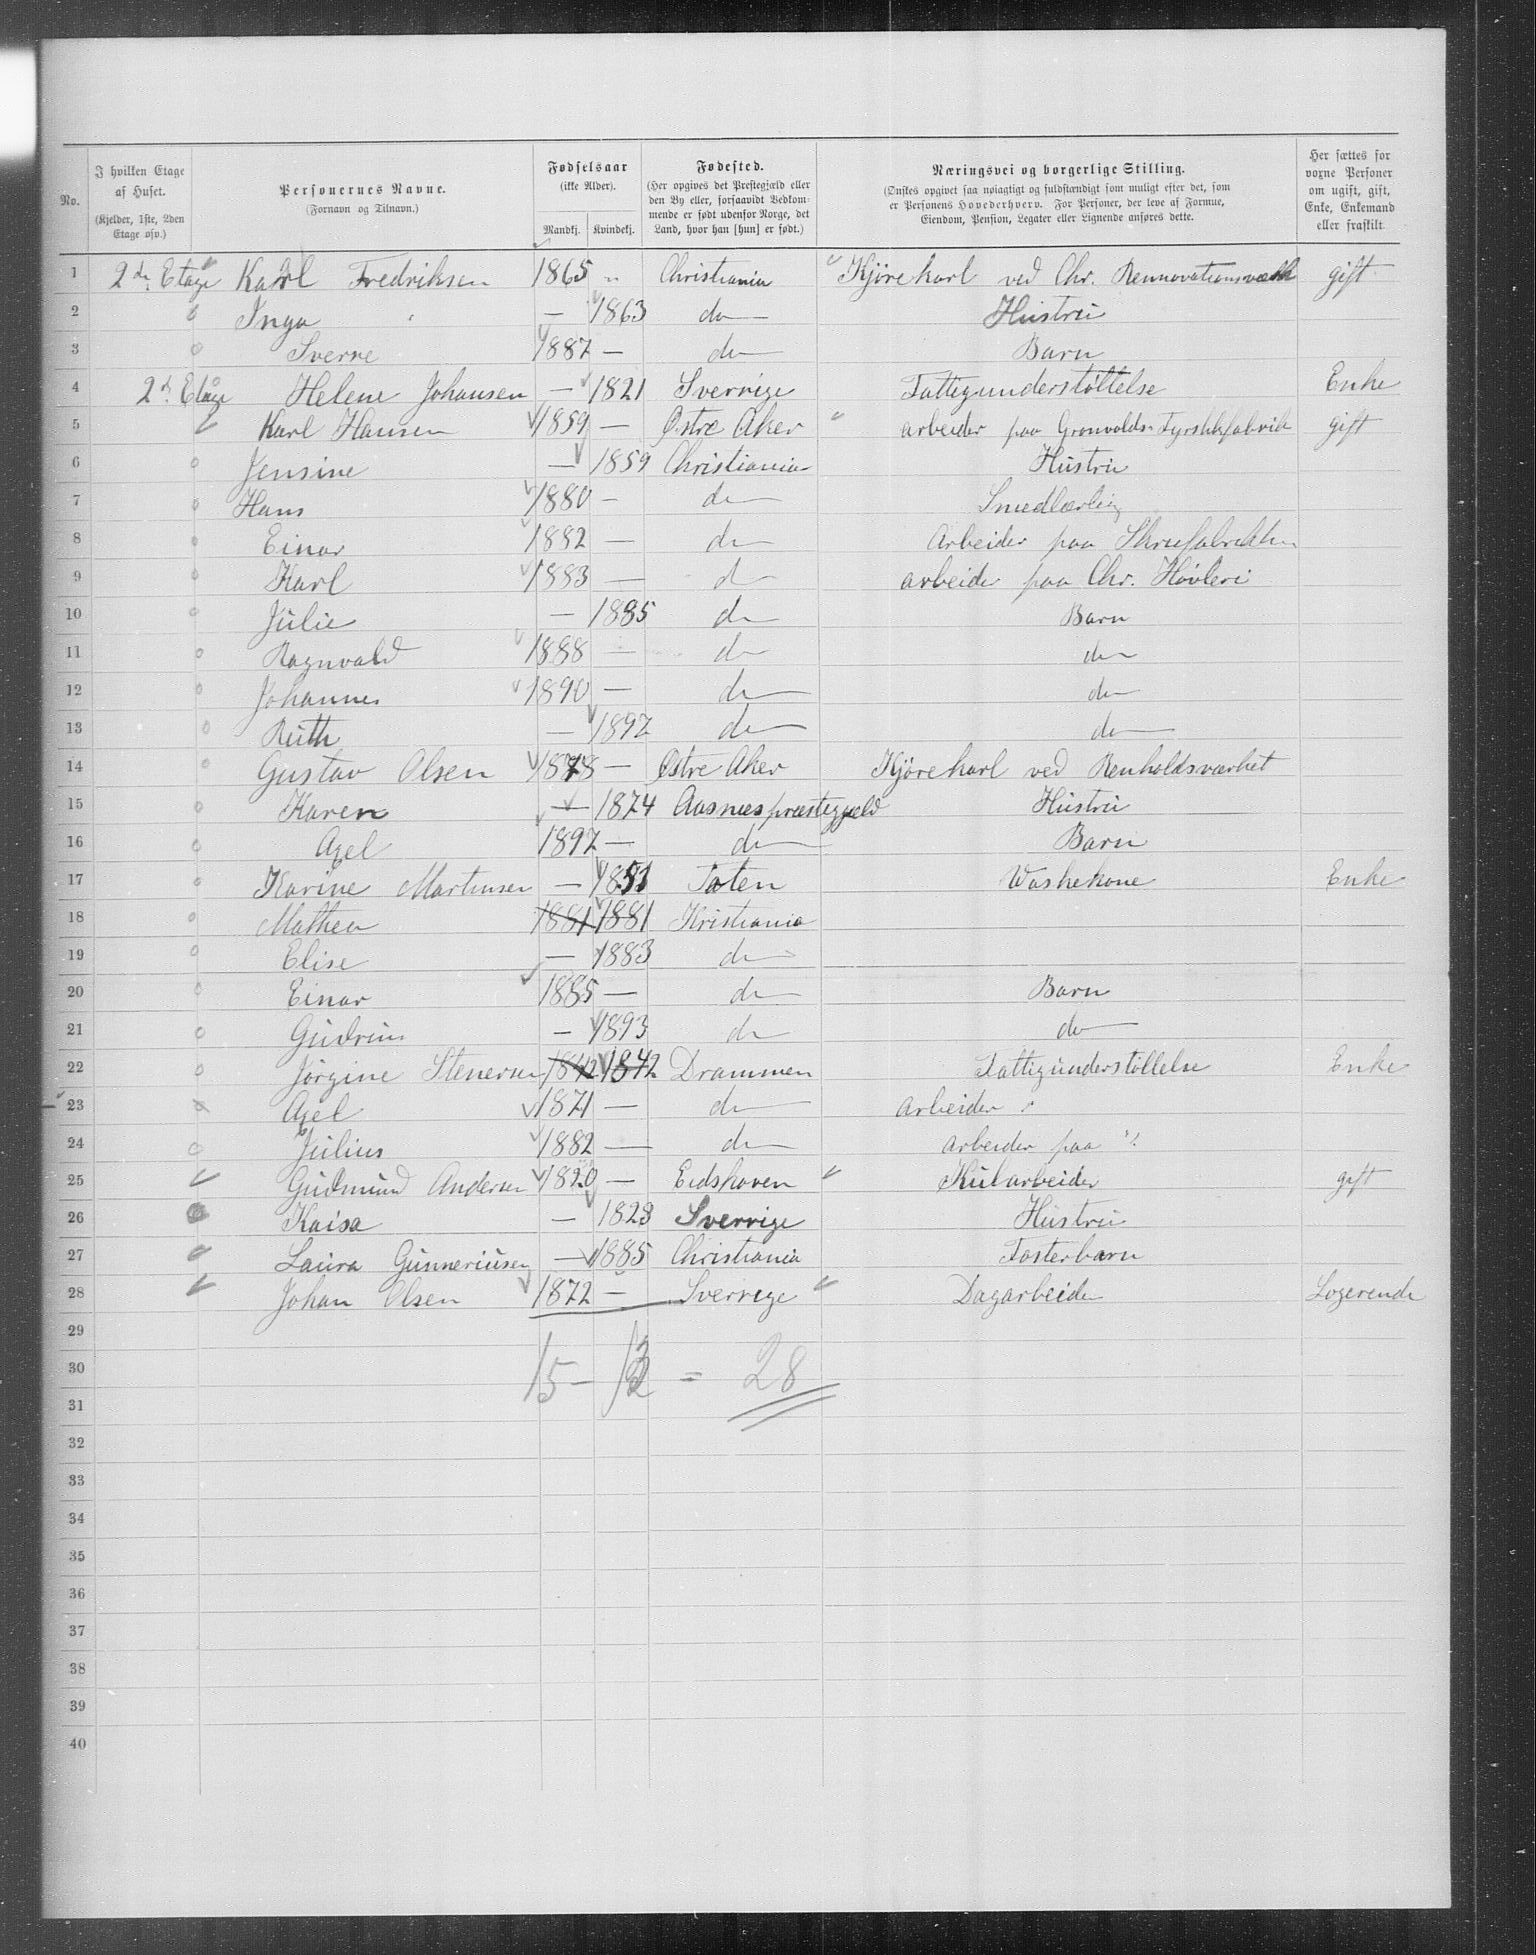 No.
I hvilken Etage af Huset. (Kjelder, 1ste, 2den Etage osv.)
Personernes Navne. (Fornavn og Tilnavn.)
Fødselsaar (ikke Alder). Mandkj. Kvindekj.
Fødested. (Her opgives det Prestegjæld eller den By eller, forsaavidt Bedkommende er født udenfor Norge, det Land, hvor han [hun] er født.)
Næringsvei og borgerlige Stilling. (Ønskes opgivet saa nøiagtigt og fuldstændigt som muligt efter det, som er Personens Hovederhverv. For Personer, der leve af Formue, Eiendom, Pension, Legater eller Lignende anføres dette.)
Her sættes for voxne Personer om ugift, gift, Enke, Enkemand eller fraskilt.
1 2den Etage Karl Fredriksen 1865 " Christiania Kjørekarl ved Chr. Rennovationsværk gift
2 Inga — 1863 do Hustru
3 Sverre 1887 — do Barn
4 2d Etage Helene Johansen — 1821 Sverrige Fattigunderstøttelse Enke
5 Karl Hansen 1859 — Østre Aker arbeider paa Grønvolds Fyrstikfabrik gift
6 Jensine — 1859 Christiania Hustru
7 Hans 1880 — do Smedlærling
8 Einar 1882 — do Arbeider paa Skruefabrikken
9 Karl 1883 — do arbeider paa Chr. Høvleri
10 Julie — 1885 do Barn
11 Ragnvald 1888 — do do
12 Johannes 1890 — do do
13 Ruth — 1897 do do
14 Gustav Olsen 1878 — Østre Aker Kjørekarl ved Renholdsværket
15 Karen — 1874 Aasnes præstegjæld Hustru
16 Axel 1897 — do Barn
17 Karine Martinsen — 1851 Toten Waskekone Enke
18 Mathea 1881 1881 Kristiania
19 Elise — 1883 do
20 Einar 1885 — do Barn
21 Gudrun — 1893 do do
22 Jørgine Stenersen 1842 1842 Drammen Fattigunderstøttelse Enke
23 Axel 1871 — do Arbeider
24 Julius 1882 — do arbeider paa
25 Gudmund Andersen 1820 — Eidskoven Kularbeider gift
26 Kaisa — 1823 Sverrige Hustru
27 Laura Gunneriusen — 1885 Christiania Fosterbarn
28 Johan Olsen 1872 — Sverrige Dagarbeider Logerende
29
30 15 – 13 = 28
31
32
33
34
35
36
37
38
39
40